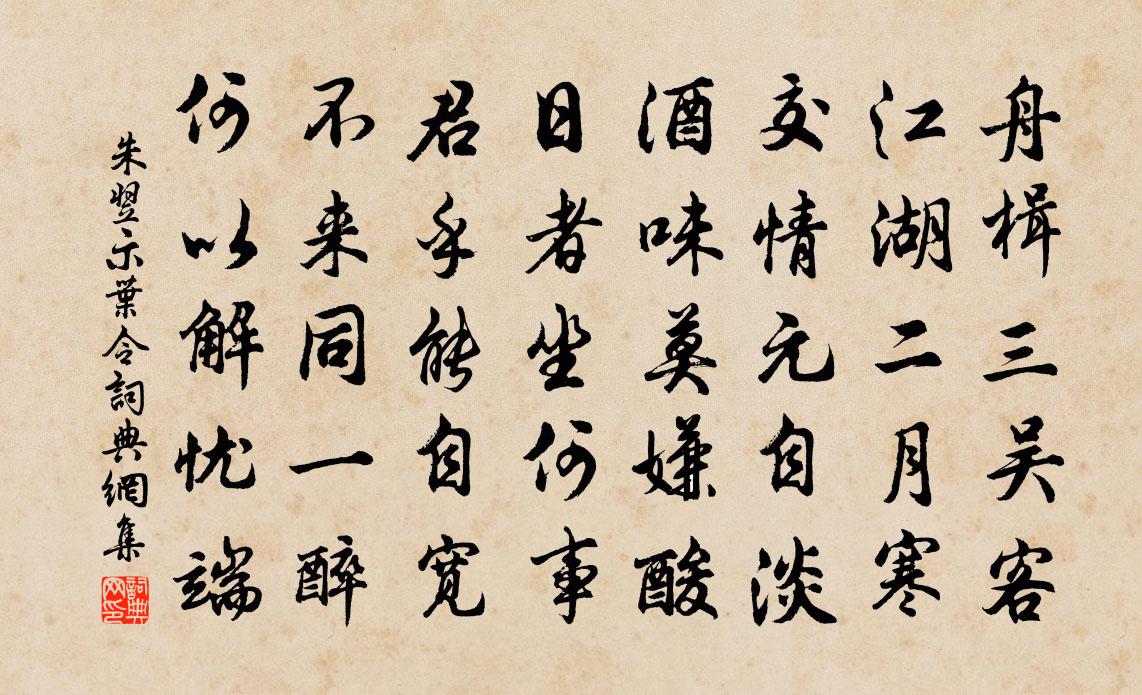 舟楫三吴客
江湖二月寒
交情元自淡
酒味莫嫌酸
日者坐何事
君乎能自宽
不来同一醉
何以解忧端
朱翌示葉令詞典網集
詞典网印